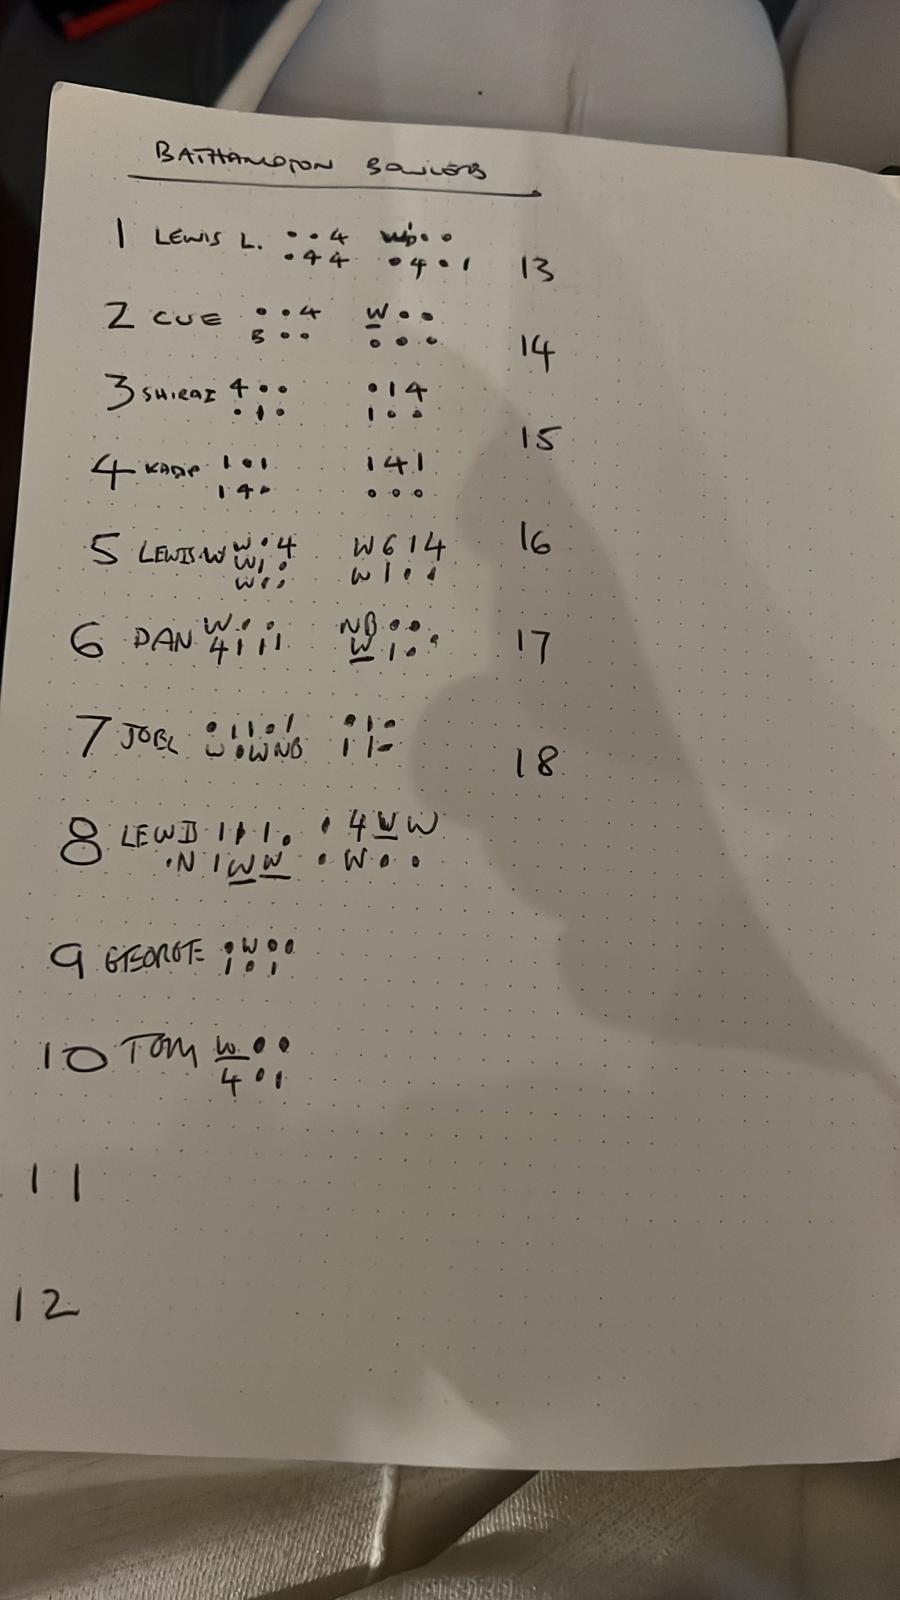 BATHAMPTON BOWLERS
1 LEWIS L. • • 4 • •
• 4 4 • 4 • 1
13
2 CUE • • 4 W • •
B • • • • •
14
3 SHIRAZ 4 • • • 1 4
• 1 • 1 • •
15
4 1 • 1 1 4 1
1 4 • • • •
16
5 LEWIS W W • 4 W 6 1 4
W 1 • W 1 • •
W • •
6 DAN W • • NB • •
4 1 1 1 W 1 • •
17
7 JOEL • 1 1 • 1 • 1 •
W • W NB 1 1 •
18
8 LEWIS 1 1 1 • • 4 W W
• N 1 W W • W • •
9 GEORGE • W • •
1 • 1 •
10 TOM W • •
4 • 1
11
12